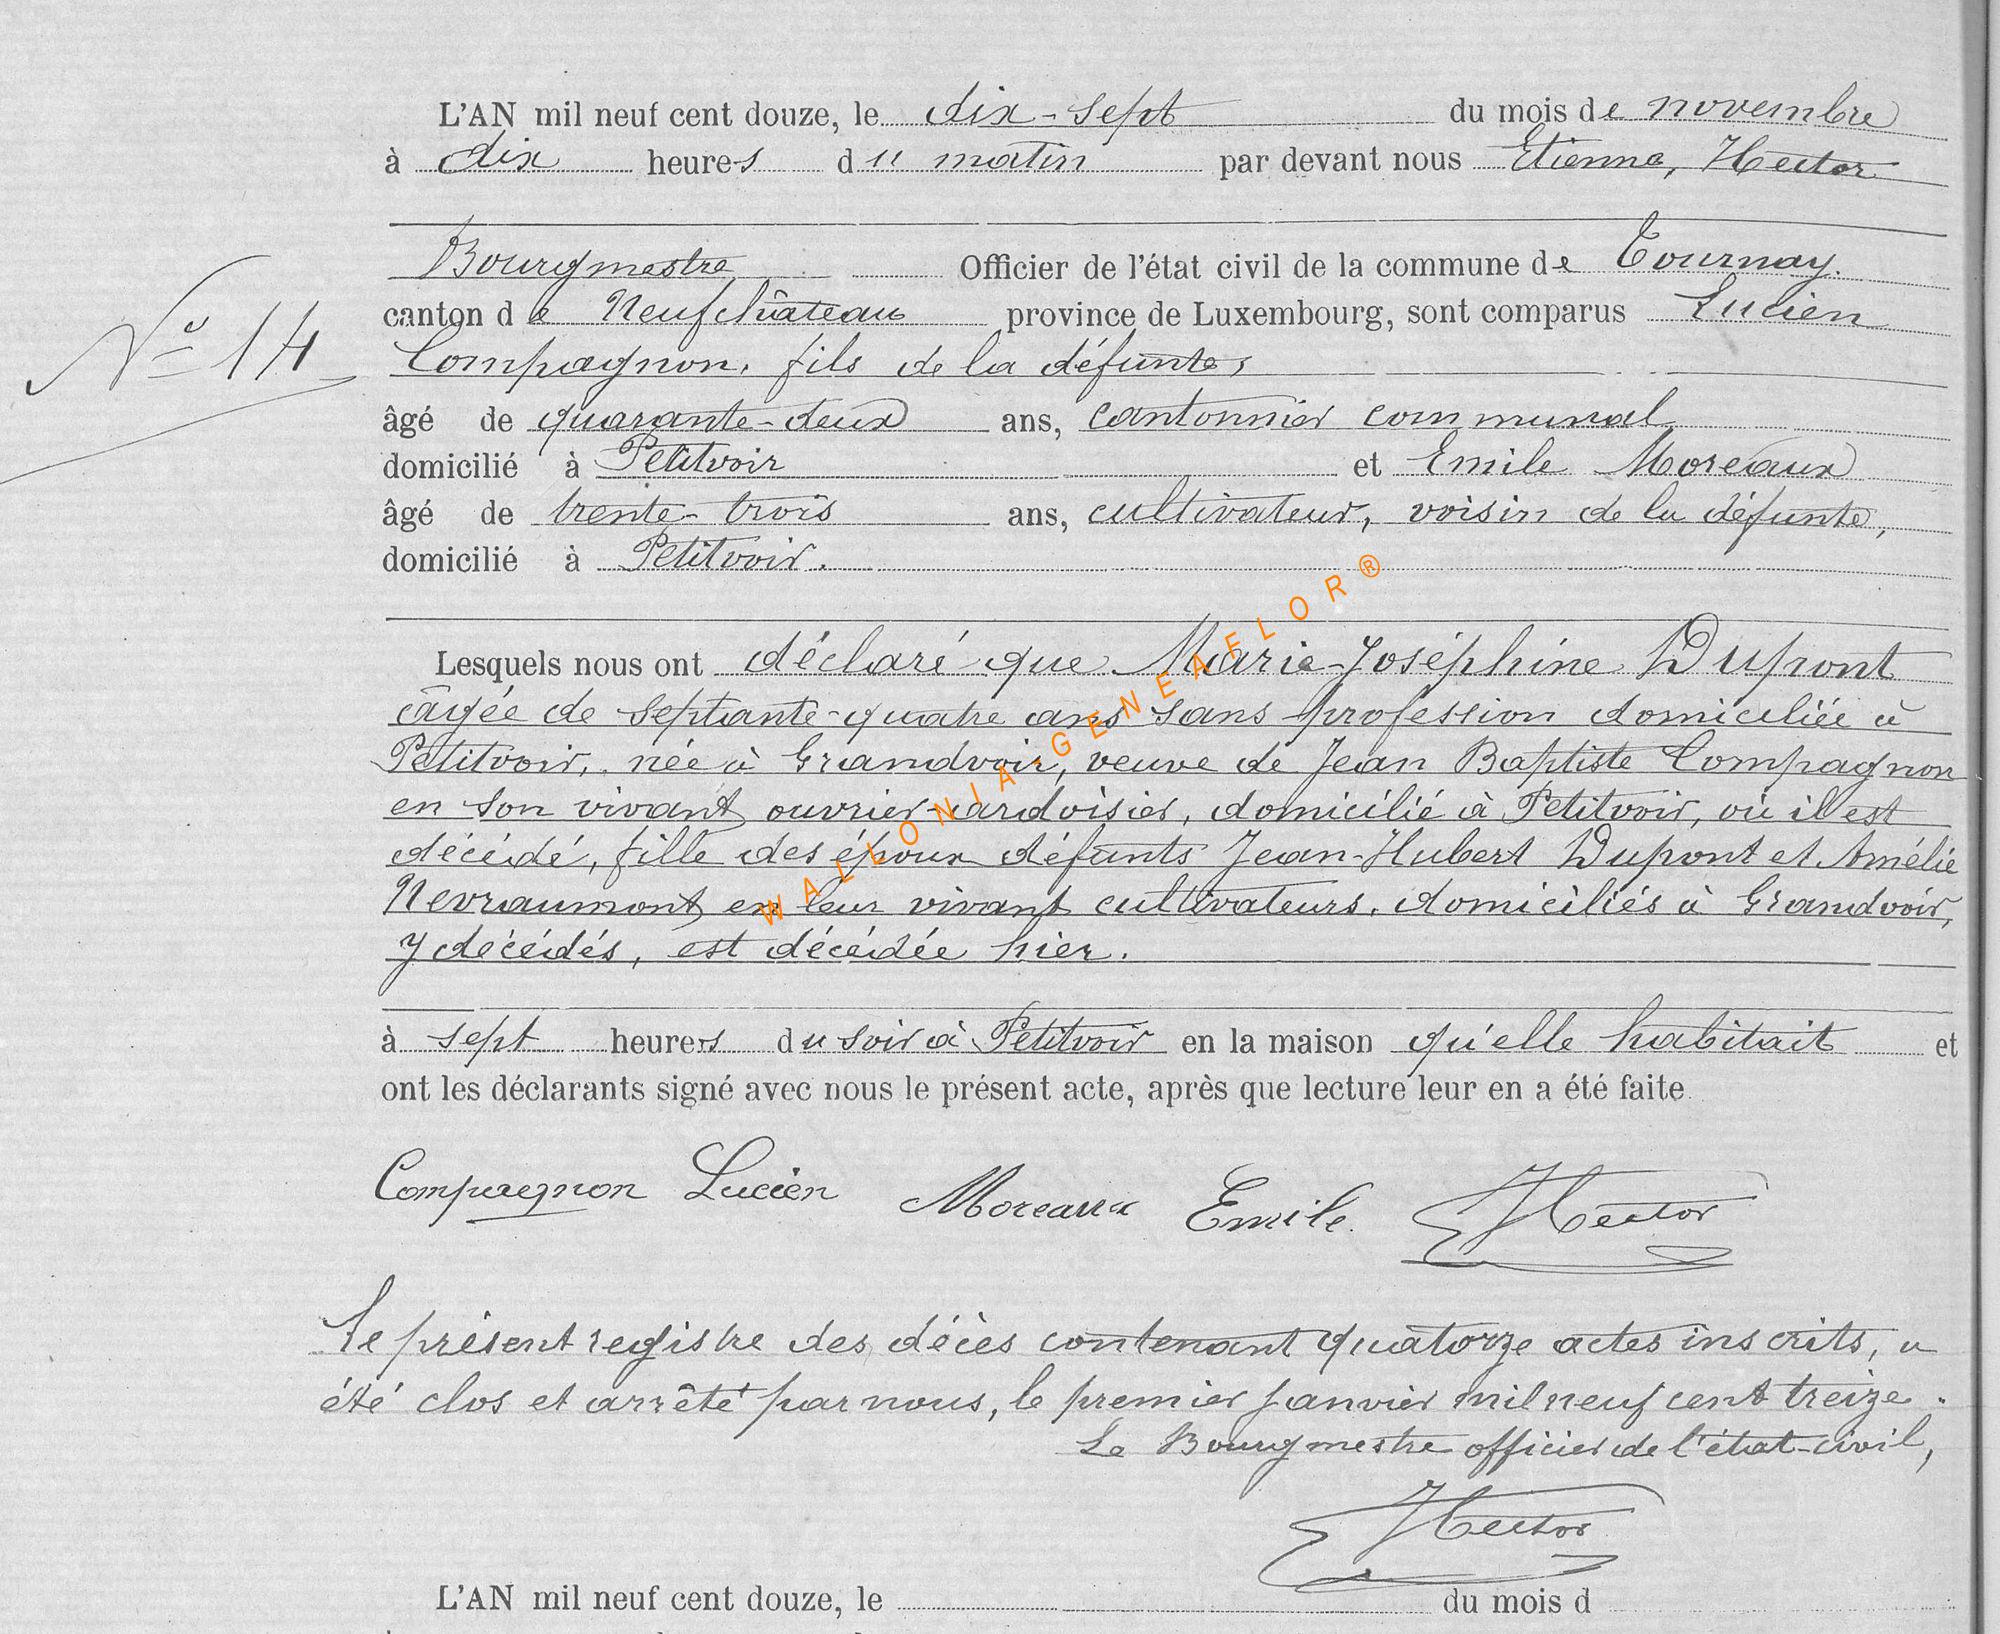 L'AN mil neuf cent douze, le dix-sept du mois de novembre
à dix heures du matin par devant nous Etienne, Hector
Bourgmestre Officier de l'état civil de la commune de Tournay.
canton de Neufchâteau province de Luxembourg, sont comparus Lucien
N° 14
Compagnon, fils de la défunte,
âgé de quarante-deux ans, cantonnier communal
domicilié à Petitvoir et Emile Moreaux
âgé de trente-trois ans, cultivateur, voisin de la défunte,
domicilié à Petitvoir.
Lesquels nous ont déclaré que Marie-Joséphine Dupont
âgée de septante-quatre ans sans profession domiciliée à
Petitvoir, née à Grandvoir, veuve de Jean Baptiste Compagnon
en son vivant ouvrier-ardoisier, domicilié à Petitvoir, où il est
décédé, fille des époux défunts Jean-Hubert Dupont et Amélie
Nevraumont en leur vivant cultivateurs, domiciliés à Grandvoir,
y décédés, est décédée hier.
à sept heures du soir à Petitvoir en la maison qu'elle habitait et
ont les déclarants signé avec nous le présent acte, après que lecture leur en a été faite
Compagnon Lucien Moreaux Emile. Hector
Le présent registre des décès contenant quatorze actes inscrits, a
été clos et arrêté par nous, le premier janvier mil neuf cent treize.
Le Bourgmestre officier de l'état-civil,
Hector
L'AN mil neuf cent douze, le du mois d
WALLONIA-GENEAFLOR®